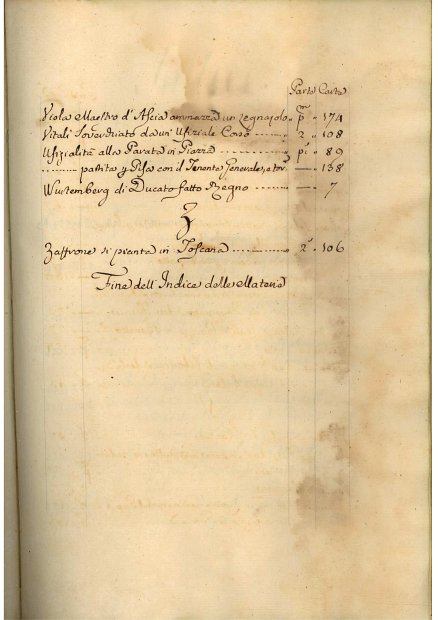 Parte Carte
Viola Maestro d'Ascia ammazza un legnajolo „ pᵐ „ 174
Vitali Soverchiato da un' Ufiziale Corso ........ „ 2 „ 108
Ufizialità alla Parata in Piazza ............ „ pᵃ „ 89
......... partita p Pisa con il Tenente Generale, e „ — „ 138
Wurtemberg di Ducato fatto Regno ........ „ — „ 7
Z
Zaffrone si pianta in Toscana ............ „ 2ᵃ „ 106
Fine dell'Indice delle Materie